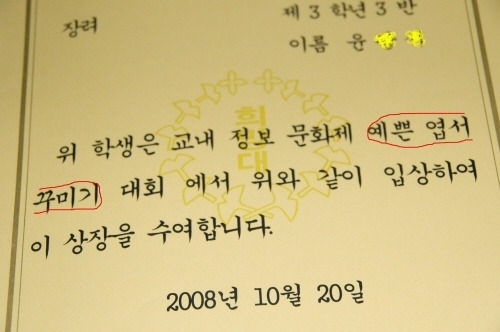 장려
제 3 학년 3 반
이름 윤
위 학생은 교내 정보 문화제 예쁜 엽서
꾸미기 대회 에서 위와 같이 입상하여
이 상장을 수여합니다.
2008년 10월 20일